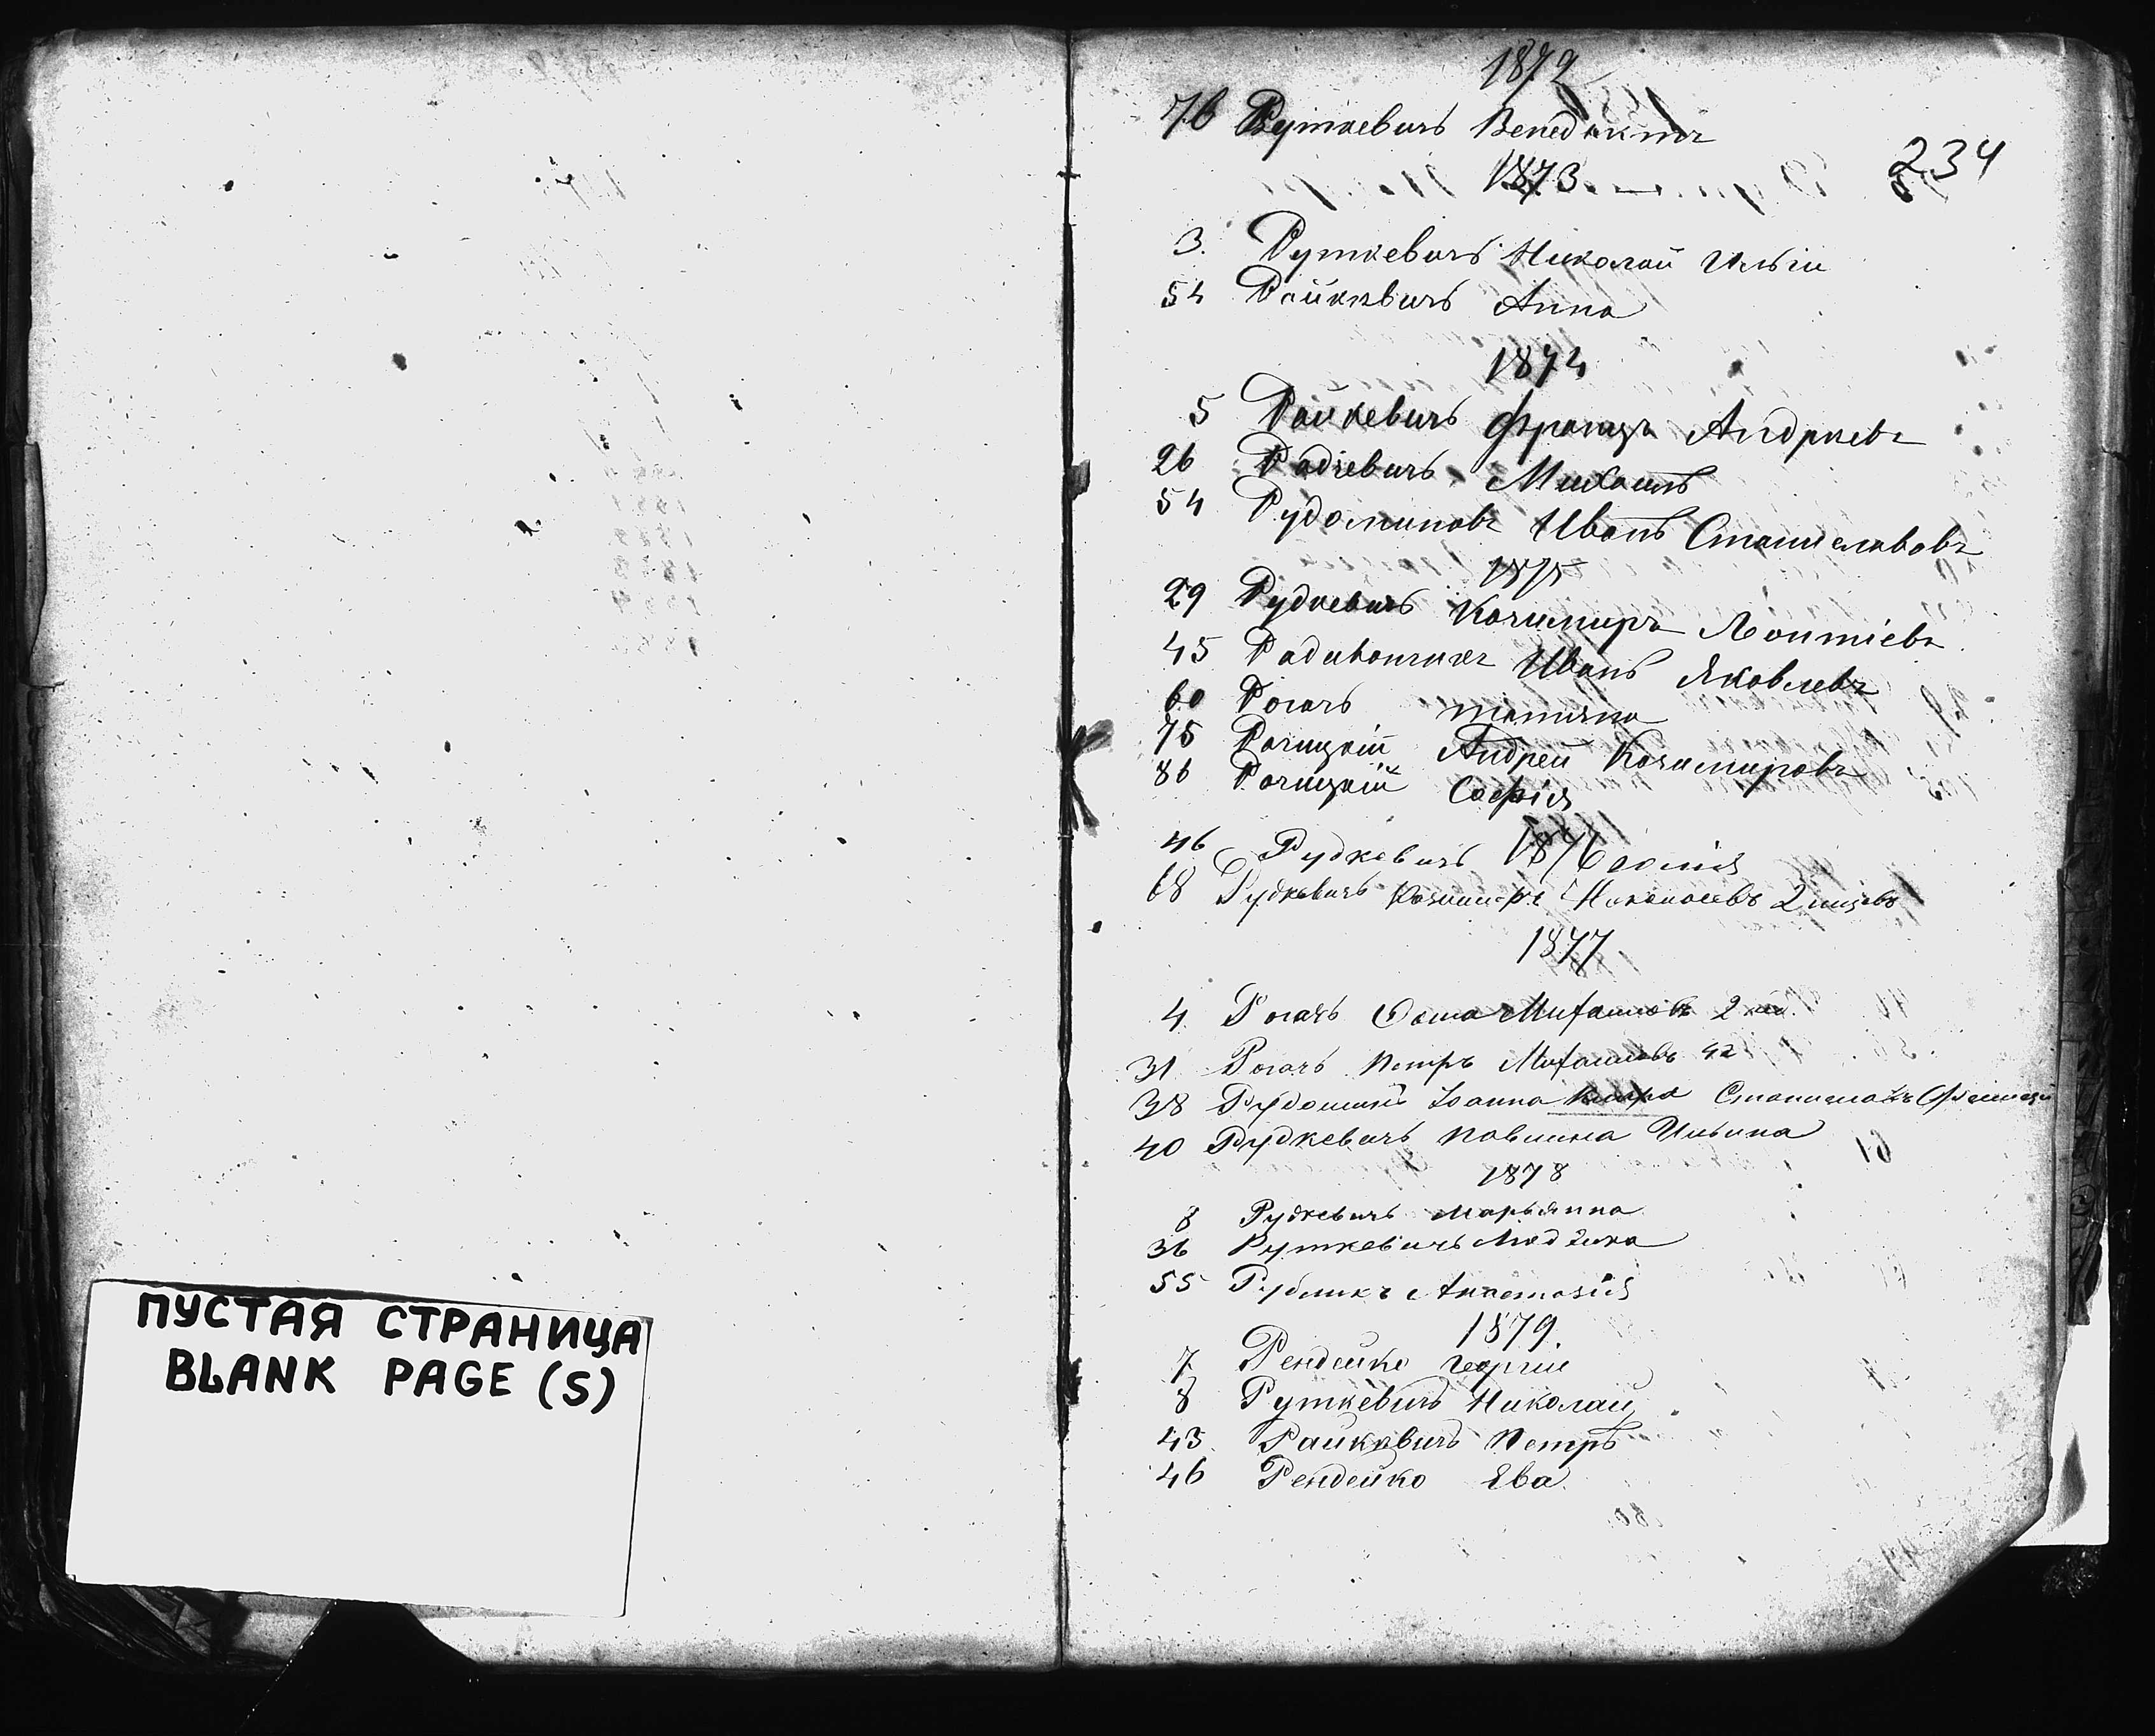 ПУСТАЯ СТРАНИЦА
BLANK PAGE (S)
1872
76 Руткевичъ Бенедиктъ
234
1873
3. Руткевичъ Николай Ильи
54 Райкевичъ Анна
1874
5 Райкевичъ Францъ Андреевъ
26 Радкевичъ Михаилъ
54 Рудоминовъ Иванъ Станиславовъ
1875
29 Рудкевичъ Казимиръ Леонтіевъ
45 Иванъ Яковлевъ
60 Рогачъ Татіяна
75 Рачицкій Андрей Казимировъ
86 Рачицкій Софія
1876
46 Рудкевичъ
68 Рудкевичъ Казимиръ Николаевъ 2
1877
4 Рогачъ Михаиловъ 2
31 Рогачъ Петръ Михаиловъ 42
38 Іоанна
40 Рудкевичъ Павлина Ильина
1878
8 Рудкевичъ Марьянна
36 Руткевичъ
55 Рубникъ Анастасія
1879.
7 Рендейко Георгій
8 Руткевичъ Николай
43 Райкевичъ Петръ
46 Рендейко Ева